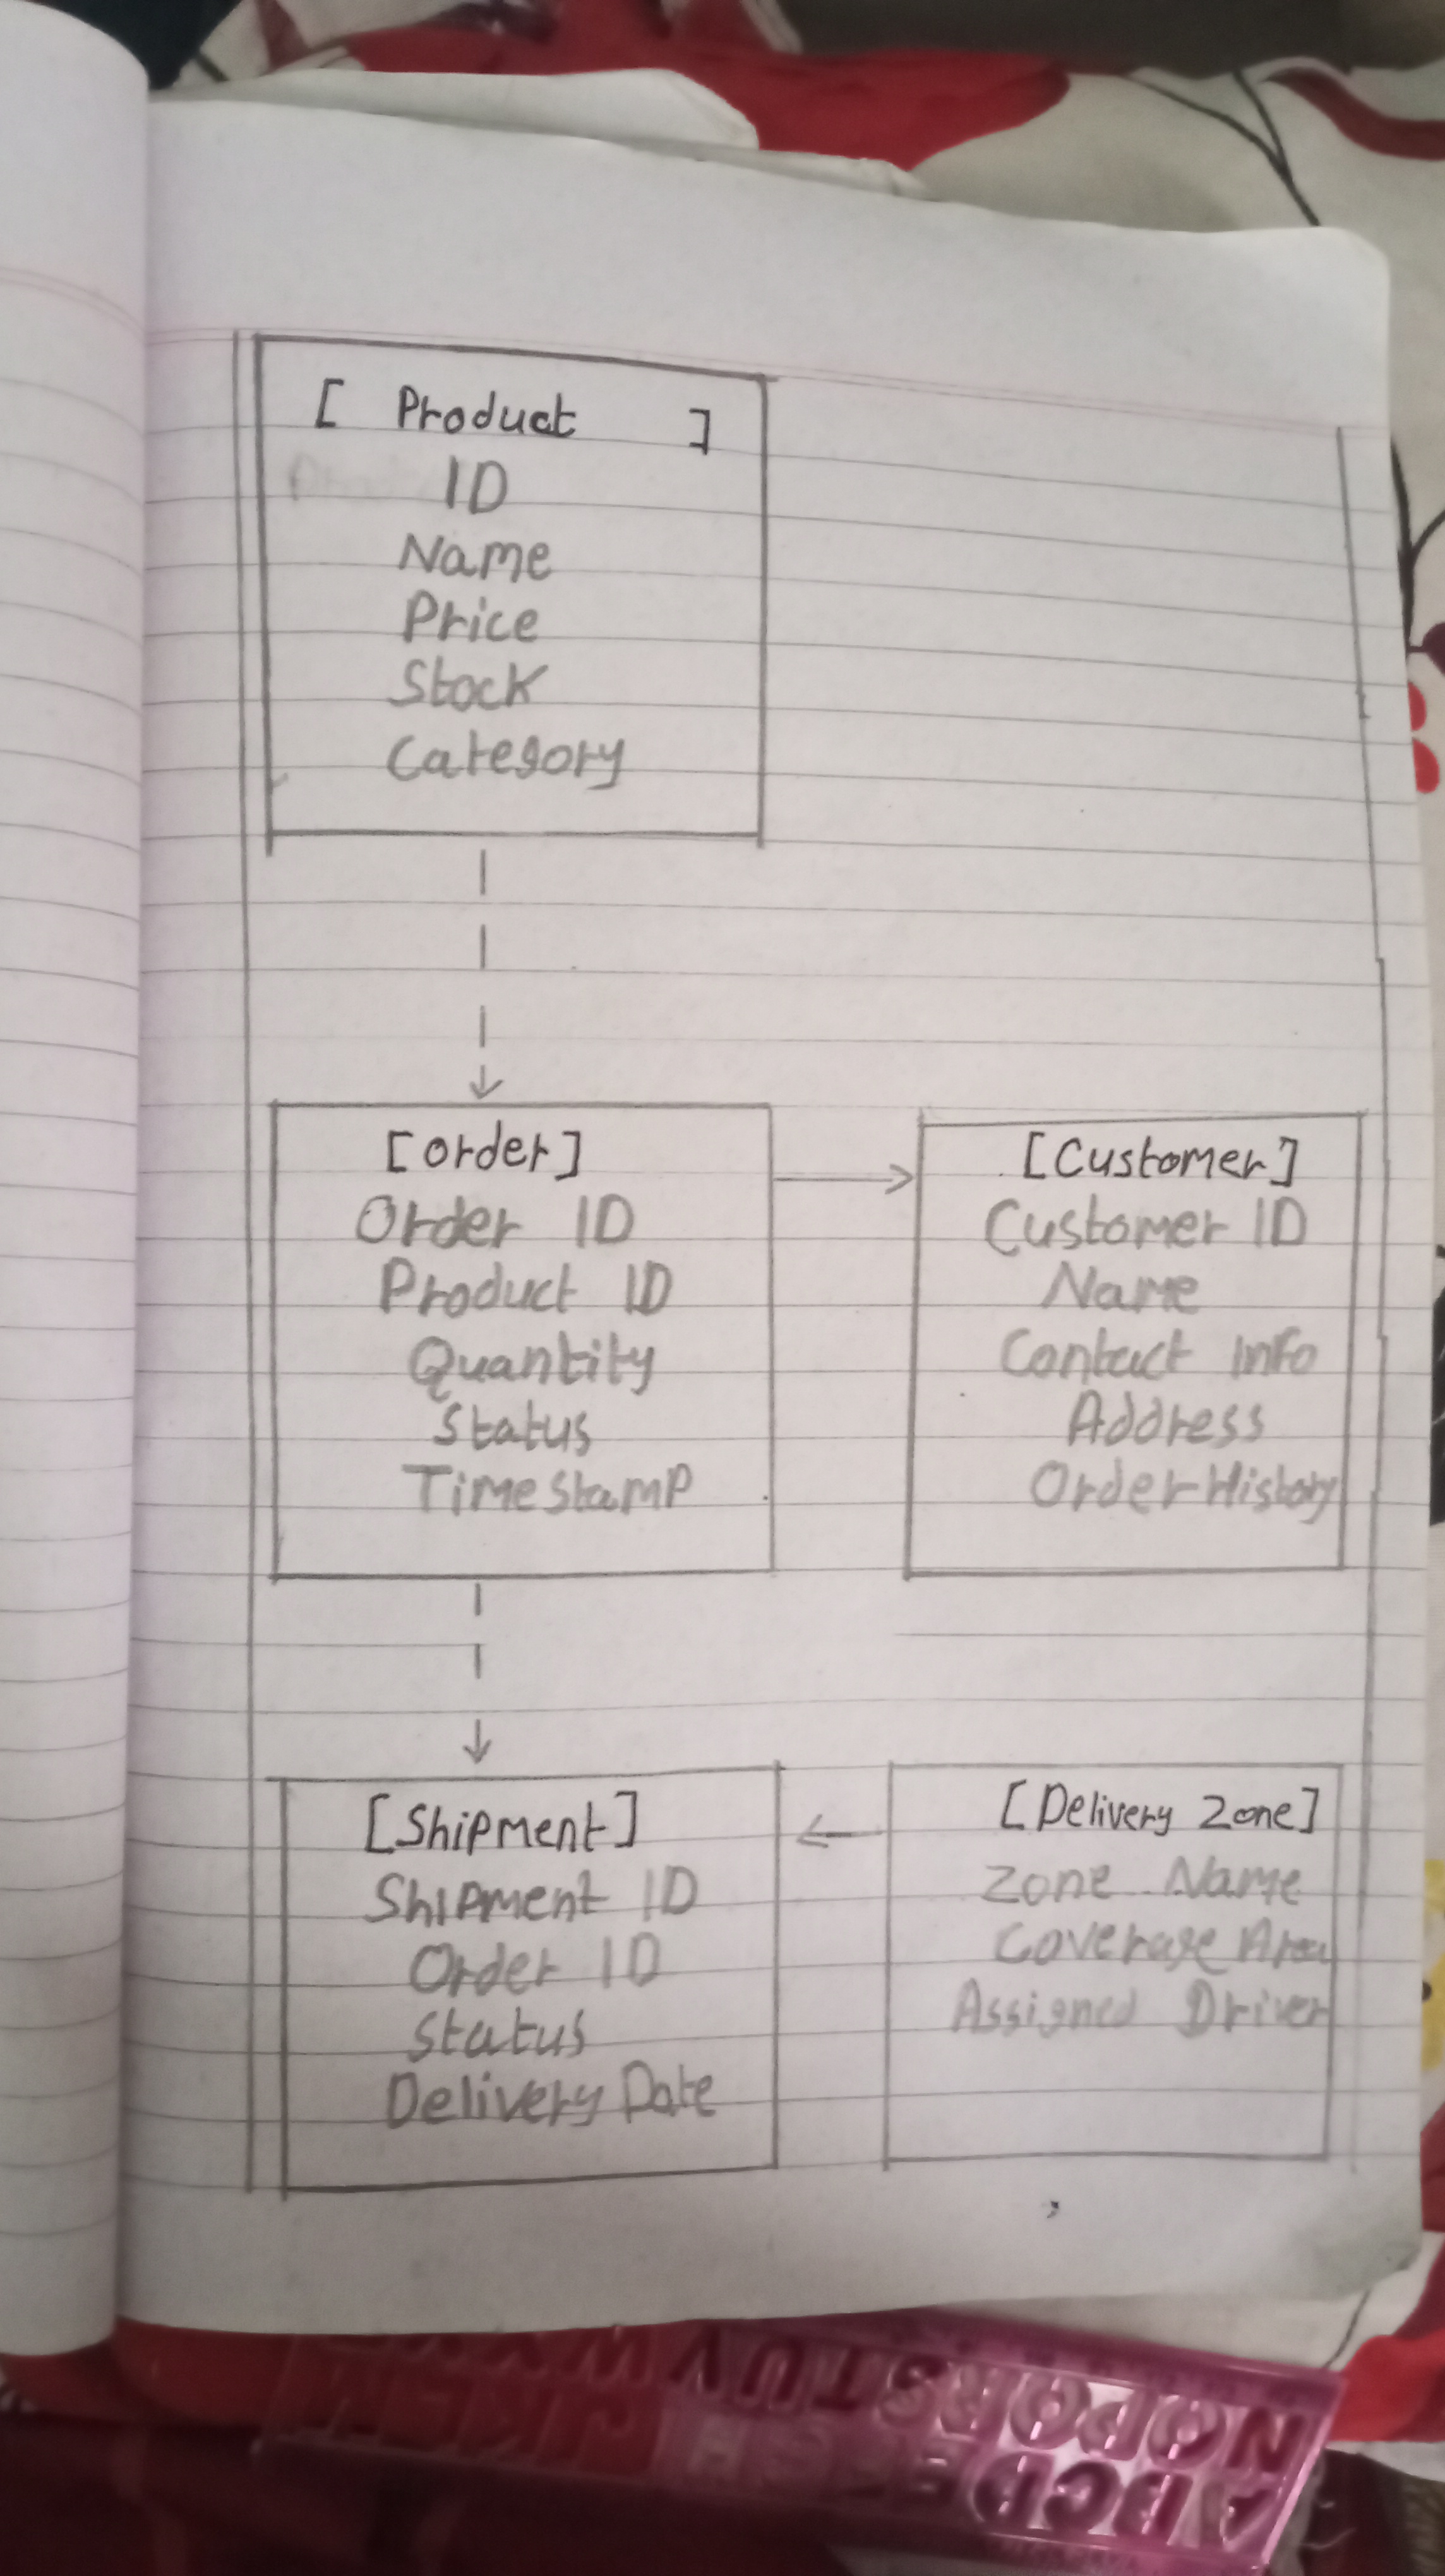 [ Product ]
ID
Name
Price
Stock
Category
[order]
Order ID
Product ID
Quantity
Status
TimeStamp
[Customer]
Customer ID
Name
Contact info
Address
Order History
[Shipment]
Shipment ID
Order ID
Status
Delivery Date
[Delivery Zone]
Zone Name
Coverage Area
Assigned Driver